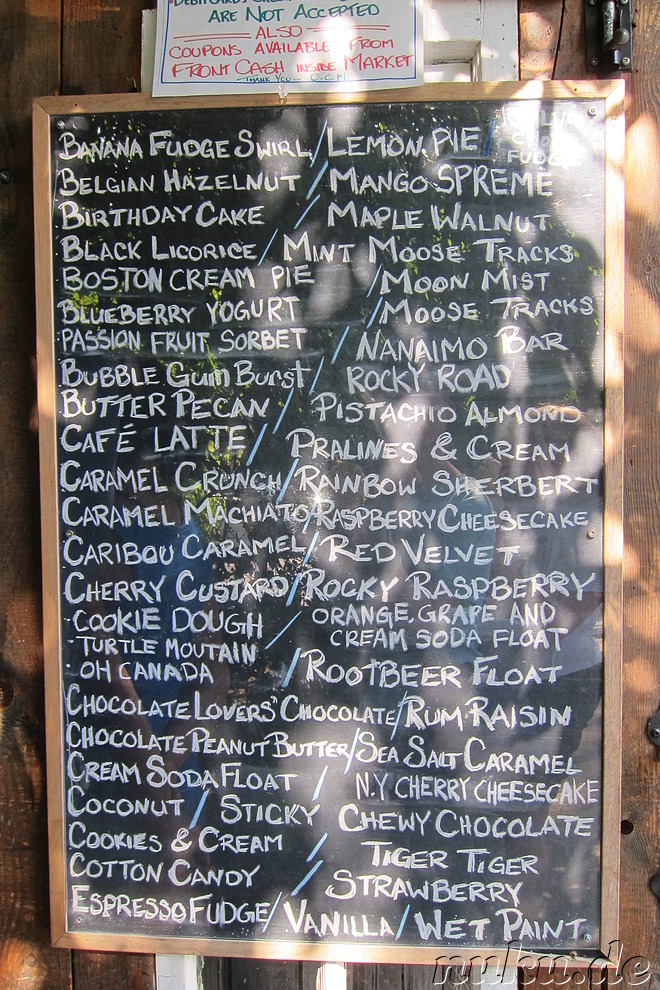 DEBIT CARDS
ARE NOT ACCEPTED
ALSO
COUPONS AVAILABLE FROM
FRONT CASH INSIDE MARKET
THANK YOU. O.C.M
BANANA FUDGE SWIRL / LEMON PIE
FUDGE
BELGIAN HAZELNUT / MANGO SPREME
BIRTHDAY CAKE / MAPLE WALNUT
BLACK LICORICE / MINT MOOSE TRACKS
BOSTON CREAM PIE / MOON MIST
BLUEBERRY YOGURT / MOOSE TRACKS
PASSION FRUIT SORBET / NANAIMO BAR
BUBBLE GUM BURST / ROCKY ROAD
BUTTER PECAN / PISTACHIO ALMOND
CAFÉ LATTE / PRALINES & CREAM
CARAMEL CRUNCH / RAINBOW SHERBERT
CARAMEL MACHIATO / RASPBERRY CHEESECAKE
CARIBOU CARAMEL / RED VELVET
CHERRY CUSTARD / ROCKY RASPBERRY
COOKIE DOUGH / ORANGE, GRAPE AND
TURTLE MOUTAIN CREAM SODA FLOAT
OH CANADA / ROOTBEER FLOAT
CHOCOLATE LOVERS' CHOCOLATE / RUM-RAISIN
CHOCOLATE PEANUT BUTTER / SEA SALT CARAMEL
CREAM SODA FLOAT / N.Y CHERRY CHEESECAKE
COCONUT / STICKY CHEWY CHOCOLATE
COOKIES & CREAM / TIGER TIGER
COTTON CANDY / STRAWBERRY
ESPRESSO FUDGE / VANILLA / WET PAINT
nuku.de